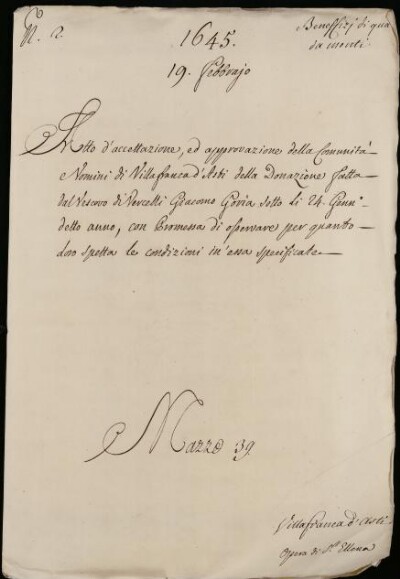 N. 2.
Beneffizj di qua
da monti
1645.
19. Febbrajo
Atto d'accettazione, ed approvazione della Comunità
e Uomini di Villafranca d'Asti della Donazione fatta
dal Vescovo di Vercelli Giacomo Goria sotto li 24. Genn.°
detto anno, con Promessa di osservare per quanto
loro spetta le condizioni in essa specificate
Mazzo 39
Villafranca d'Asti
Opera di S.ta Ellena